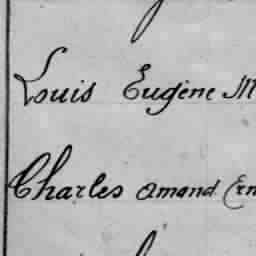 Louis Eugène M
Charles Amand Ern